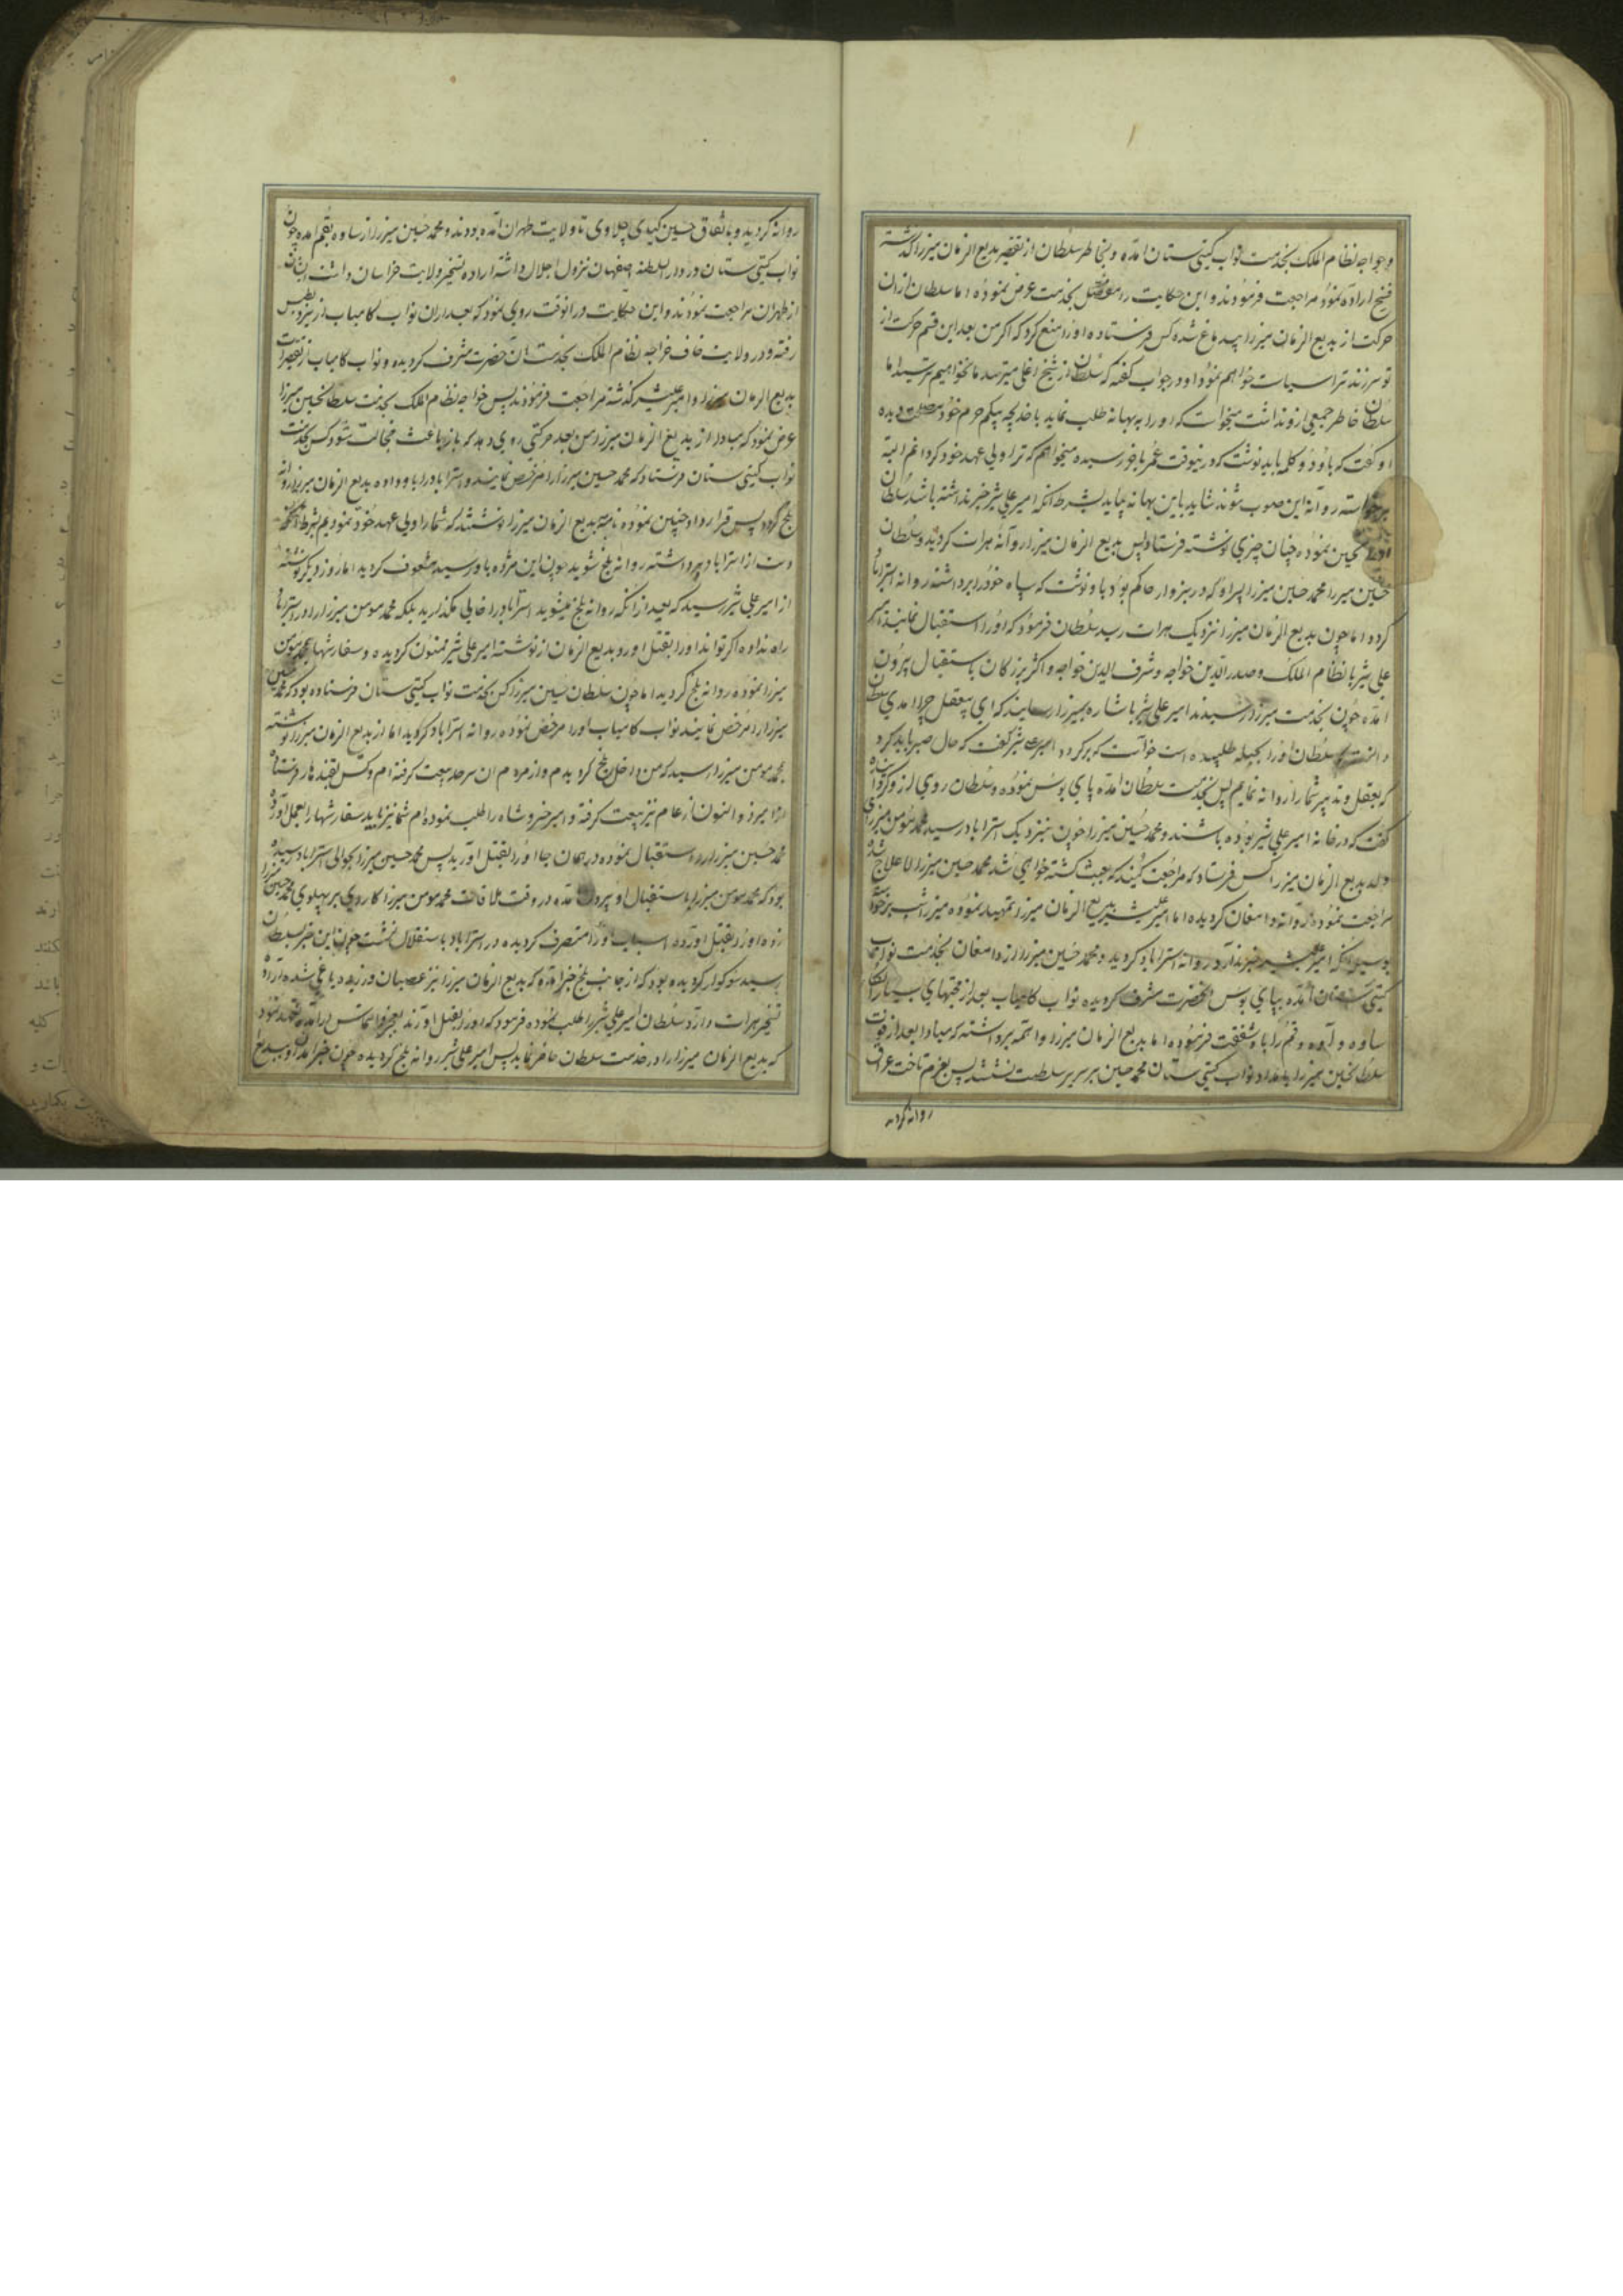 و خواجه نظام الملک بخدمت نواب کیتی ستان آمده و بخاطر سلطان از تقصیر بدیع الزمان میرزا گذشته
فسخ اراده نمود مراجعت فرمودند و این حکایت را مفصل بخدمت عرض نموده اما سلطان از ان
حرکت از بدیع الزمان میرزا بیدماغ شده کس فرستاده او را منع کرد که اکر من بعد این قسم حرکت از
تو سر زند ترا سیاست خواهم نمود او در جواب کفته که سلطان از شیخ اغلی میترسد ما نخواهیم ترسید اما
سلطان خاطر جمعی از و نداشت میخواست که او را به بهانه طلب نماید با خدیجه بیکم حرم خود مصلحت دیده
او کفت که باو دو کلمه باید نوشت که درینوقت عمر باخر رسیده میخواهم که ترا ولی عهد خود کردانم البته
برخواسته روانه این صوب شوند شاید باین بهانه بیاید بشرط انکه امیر علی شیر خبر نداشته باشد سلطان
تحسین نموده چنان چیزی نوشته فرستاد پس بدیع الزمان میرزا روانه هرات کردید و سلطان
حسین میرزا محمد حسین میرزا پسر او که در سبزوار حاکم بود باو نوشت که سپاه خود را برداشته روانه استراباد
کردد اما چون بدیع الزمان میرزا نزدیک هرات رسید سلطان فرمود که او را استقبال نمایند امیر
علی شیر با نظام الملک و صدر الدین خواجه و شرف الدین خواجه و اکثر بزرکان باستقبال بیرون
امده چون بخدمت میرزا رسیدند امیر علی شیر باشاره بمیرزا رسانید که ای بیعقل چرا امدی سلطان
دانست که سلطان او را بحیله طلبیده است خواست که برکردد امیر علی شیر کفت که حال صبر باید کرد
که بعقل و تدبیر شما را روانه نمایم پس بخدمت سلطان امده پای بوس نموده و سلطان روی از و کردانیده
کفت که در خانه امیر علی شیر بوده باشند و محمد حسین میرزا چون بنزدیک استراباد رسید محمد مومن میرزای
ولد بدیع الزمان میرزا کس فرستاد که مراجعت کنید که عبث کشته خواهی شد محمد حسین میرزا لاعلاج شده
مراجعت نموده روانه دامغان کردیده اما امیر علیشیر بدیع الزمان میرزا تمهید نموده میرزا شب برخواسته
امیر علیشیر خبر ندارد روانه استراباد کردید و محمد حسین میرزا از دامغان بخدمت نواب
کیتی ستان امده بپای بوس انحضرت مشرف کردیده نواب کامیاب بعد از محبتهای بسیار الکای
ساوه و آوه و قم را باو شفقت فرموده اما بدیع الزمان میرزا واهمه برداشته که مبادا بعد از فوت
سلطانحسین میرزا بامداد نواب کیتی ستان محمد حسین بر سریر سلطنت نشیند پس بعزم تاخت عراق
روانه کردید
روانه کردید و باتفاق حسین کیای چلاوی تا ولایت طهران آمده بودند و محمد حسین میرزا از ساوه بقم امده چون
نواب کیتی ستان در دار السلطنه اصفهان نزول اجلال داشته اراده تسخیر ولایت خراسان داشت ایشان
از طهران مراجعت نمودند و این حکایت در انوقت روی نمود که بعد از ان نواب کامیاب از یزد بطبس
رفته و در ولایت خاف خواجه نظام الملک بخدمت ان حضرت مشرف کردیده و نواب کامیاب از تقصیرات
بدیع الزمان میرزا و امیر علیشیر کذشته مراجعت فرمودند پس خواجه نظام الملک بخدمت سلطانحسین میرزا
عرض نمود که مبادا از بدیع الزمان میرزا من بعد حرکتی روی دهد که باز باعث خجالت شود کس بخدمت
نواب کیتی ستان فرستاد که محمد حسین میرزا را مرخص نمایند و استراباد را باو داده بدیع الزمان میرزا روانه
بلخ کردد پس قرارداد چنین نموده نامه بدیع الزمان میرزا نوشتند که شما را ولی عهد خود نمودیم بشرط آنکه
دست از استراباد برداشته روانه بلخ شوید چون این مژده باو رسید مشعوف کردید اما روز دیکر نوشته
از امیر علی شیر رسید که بعد از انکه روانه بلخ میشوید استراباد را خالی مکذارید بلکه محمد مومن میرزا را در استراباد
راه نداده اکر تواند او را بقتل اورد و بدیع الزمان از نوشته امیر علی شیر ممنون کردیده و سفارشها بمحمد مومن
میرزا نموده روانه بلخ کردید اما چون سلطان حسین میرزا کس بخدمت نواب کیتی ستان فرستاده بود که محمد حسین
میرزا را مرخص نمایند نواب کامیاب او را مرخص نموده روانه استراباد کردید اما از بدیع الزمان میرزا نوشته
بمحمد مومن میرزا رسید که من داخل بلخ کردیدم و از مردم ان سرحد بیعت کرفته ام و کس بقندهار فرستاده
از امیر ذوالنون ارغام نیز بیعت کرفته و امیر خسرو شاه را طلب نموده ام شما نیز باید سفارشها را بعمل آورده
محمد حسین میرزا را استقبال نموده در همان جا او را بقتل آورید پس محمد حسین میرزا بحوالی استراباد رسیده
بود که محمد مومن میرزا باستقبال او بیرون آمده در وقت ملاقات محمد مومن میرزا کاردی بر پهلوی محمد حسین میرزا
زده او را بقتل آورده اسباب او را متصرف کردیده در استراباد باستقلال نشست چون این خبر بسلطان
رسید سوکوار کردیده بود که از جانب بلخ خبر امده که بدیع الزمان میرزا نیز عصیان ورزیده یاغی شده اراده
تسخیر هرات دارد سلطان امیر علی شیر را طلب نموده فرمود که او را بقتل اورند بعجز و التماس درآمده متعهد شود
که بدیع الزمان میرزا را در خدمت سلطان حاضر نماید پس امیر علی شیر روانه بلخ کردیده چون خبر امدن او ببدیع